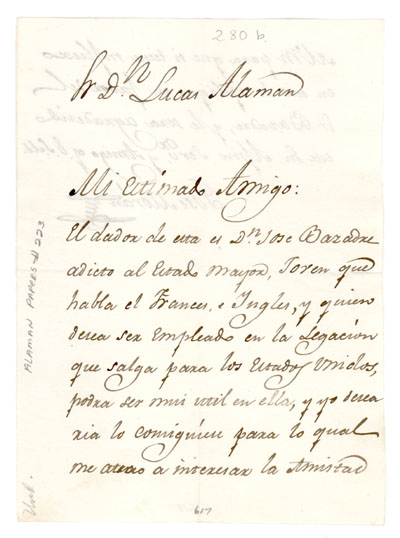 280 b.
Sr Dn Lucas Alaman
Mi Estimado Amigo:
El dador de esta es Dn Jose Bazadre
adicto al Estado mayor, Joven que
habla el Frances, e Ingles, y quien
desea ser Empleado en la Legacion
que salga para los Estados Unidos,
podra ser mui util en ella, y yo desea
ria lo consiguiese para lo qual
me atrevo a interesar la Amistad
617
ALAMAN PAPERS-# 223